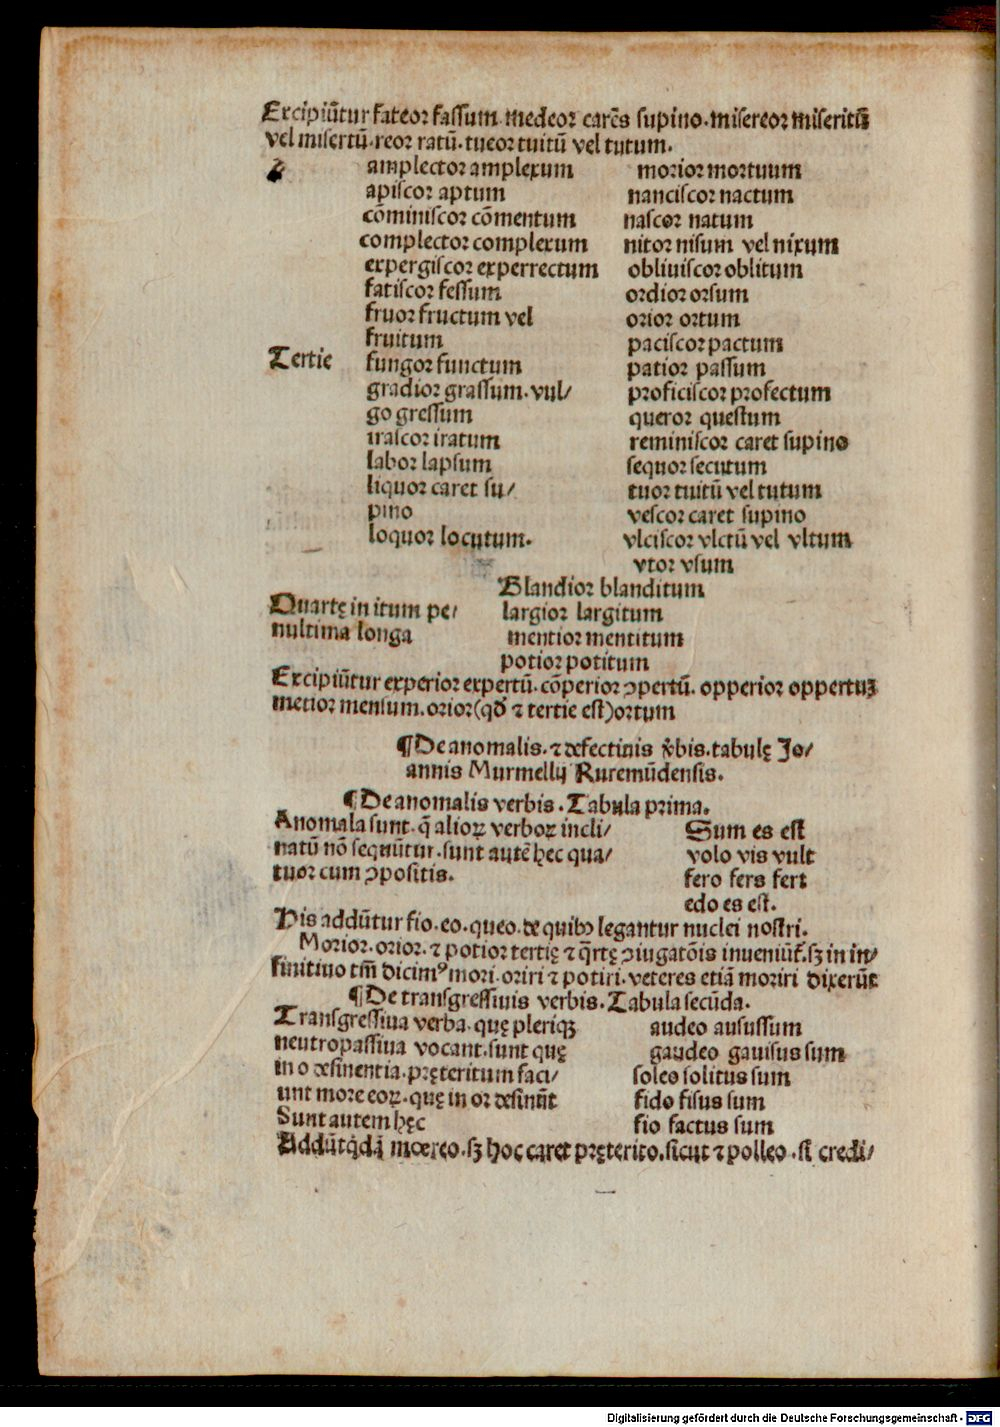 Excipiũtur fateor fassum. medeor carēs supino. misereor miseritũ
vel misertũ. reor ratũ. tueor tuitũ vel tutum.
amplector amplexum
apiscor aptum
cõminiscor cõmentum
complector complexum
expergiscor experrectum
fatiscor fessum
fruor fructum vel
fruitum
Tertie fungor functum
gradior grassum. vul/
go gressum
irascor iratum
labor lapsum
liquor caret su/
pino
loquor locutum.
morior mortuum
nanciscor nactum
nascor natum
nitor nisum vel nixum
obliuiscor oblitum
ordior orsum
orior ortum
paciscor pactum
patior passum
proficiscor profectum
queror questum
reminiscor caret supino
sequor secutum
tuor tuitũ vel tutum
vescor caret supino
vlciscor vlctũ vel vltum
vtor vsum
Quartę in itum pe/
nultima longa
Blandior blanditum
largior largitum
mentior mentitum
potior potitum
Excipiũtur experior expertũ. cõperior ꝯpertũ. opperior oppertuꝫ
metior mensum. orior (qđ ⁊ tertie est) ortum
¶ De anomalis. ⁊ defectiuis v̾bis. tabulę Jo/
annis Murmellij Ruremũdensis.
¶ De anomalis verbis. Tabula prima.
Anomala sunt. q̃ alioꝝ verboꝝ incli/
natũ nõ sequũtur. sunt autē hec qua/
tuor cum ꝯpositis.
Sum es est
volo vis vult
fero fers fert
edo es est.
His addũtur fio. eo. queo. de quibꝰ legantur nuclei nostri.
Morior. orior. ⁊ potior tertię ⁊ q̃rtę ꝯiugatõis inueniũt̾. sꝫ in in/
finitiuo tm̃ dicimꝰ mori. oriri ⁊ potiri. veteres etiã moriri dixerũt
¶ De transgressiuis verbis. Tabula secũda.
Transgressiua verba. quę pleriqꝫ
neutropassiua vocant. sunt quę
in o desinentia. pręteritum faci/
unt more eoꝝ. quę in or desinũt
Sunt autem hęc
audeo ausussum
gaudeo gauisus sum
soleo solitus sum
fido fisus sum
fio factus sum
Addũt q̃dã mœreo. sꝫ hoc caret pręterito. sicut ⁊ polleo. si credi/
Digitalisierung gefördert durch die Deutsche Forschungsgemeinschaft - DFG